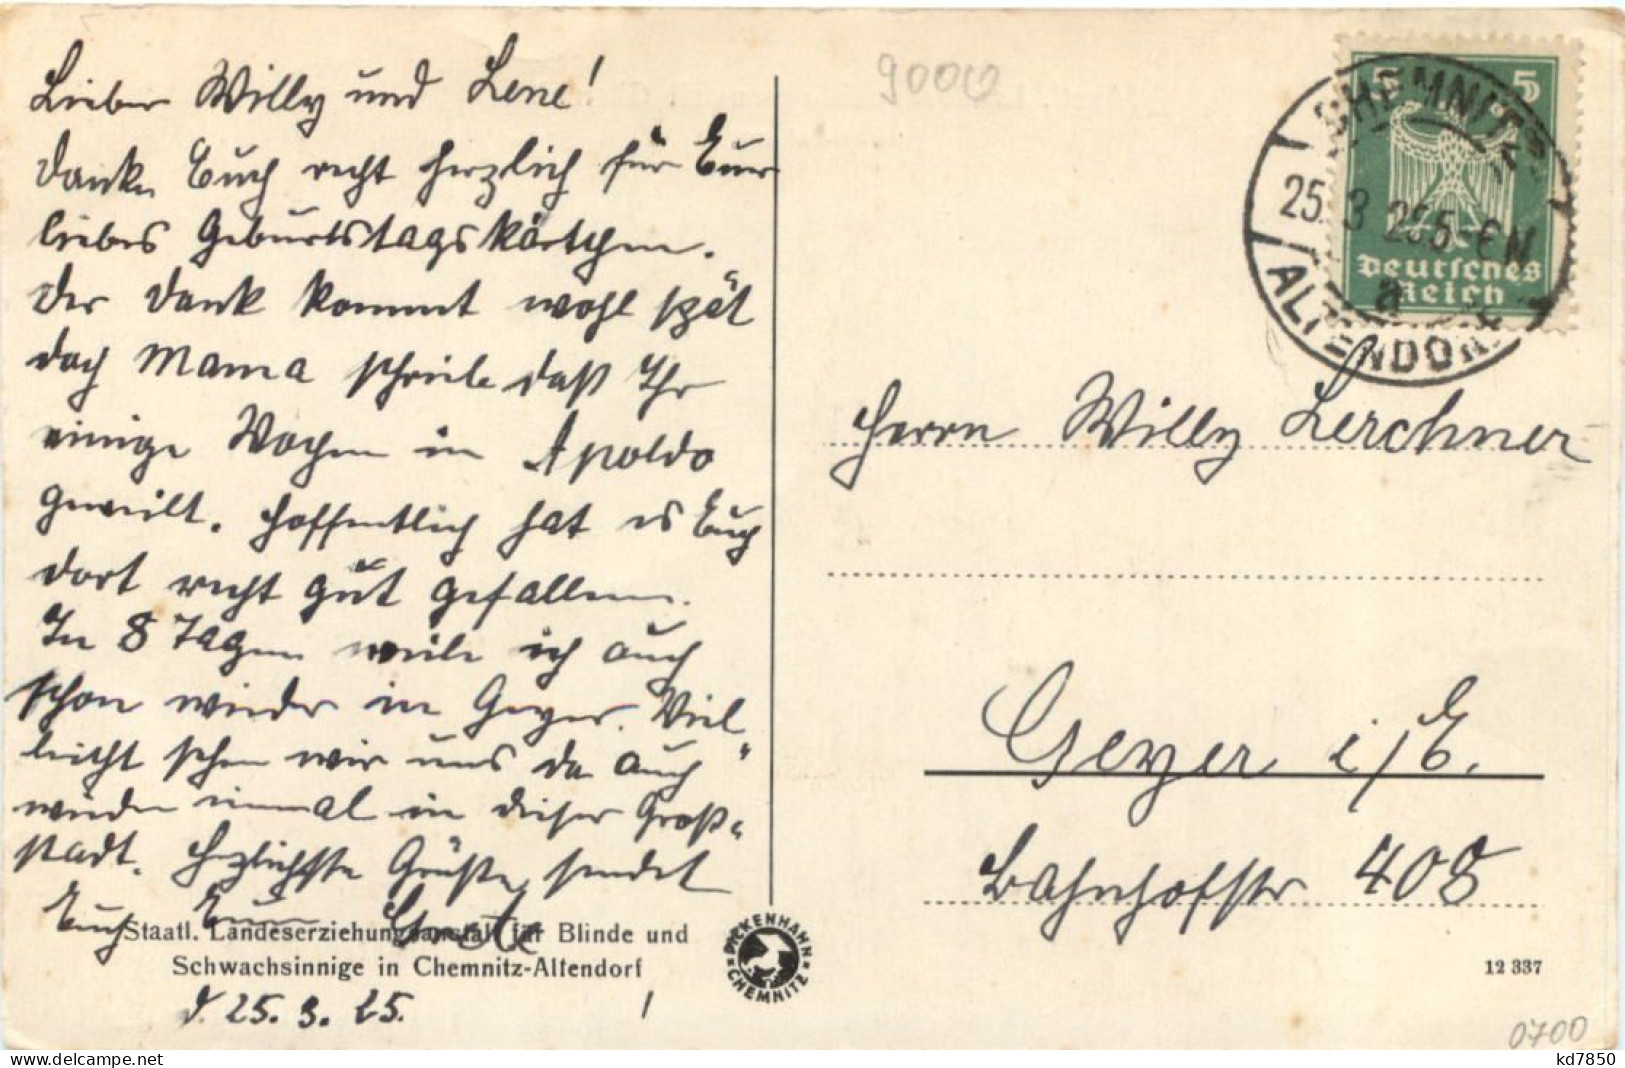 Lieber Willy und Lene!
Danke Euch recht herzlich für Euer
liebes Geburtstagskärtchen.
Der Dank kommt wohl spät
doch Mama schrieb daß Ihr
einige Wochen in Apolda
geweilt. Hoffentlich hat es Euch
dort recht gut gefallen.
In 8 Tagen weile ich auch
schon wieder in Geyer. Viel-
leicht sehen wir uns da auch
wieder einmal in dieser Groß-
stadt. Herzlichste Grüße sendet
Euch Eure
Staatl. Landeserziehungsanstalt für Blinde und
Schwachsinnige in Chemnitz-Altendorf
d. 25. 3. 25.
PICKENHAHN
CHEMNITZ
9000
5 5
Deutsches
Reich
CHEMNITZ
25. 3 25 5-6 N
a
ALTENDORF
Herrn Willy Lerchner
Geyer i/E.
Bahnhofstr 408
12 337
0700
kd7850